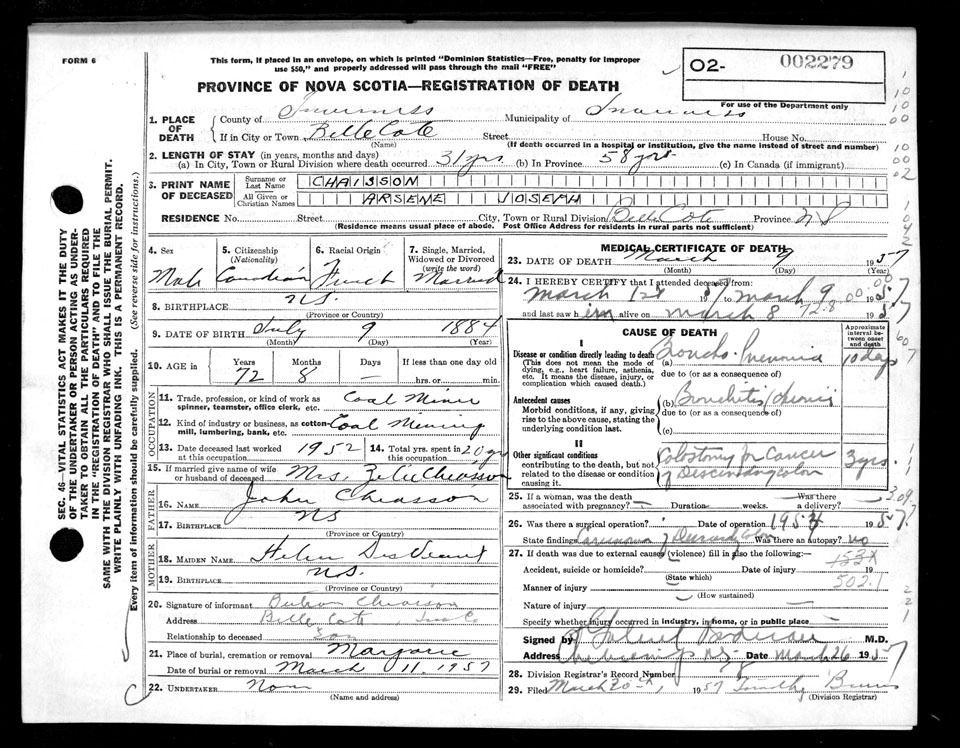 FORM 6
This form, if placed in an envelope, on which is printed "Dominion Statistics—Free, penalty for improper
use $50," and properly addressed will pass through the mail "FREE"
O2- 002279
PROVINCE OF NOVA SCOTIA—REGISTRATION OF DEATH
For use of the Department only
1. PLACE OF DEATH
County of Inverness Municipality of Inverness
If in City or Town Belle Cote Street House No.
(Name) (If death occurred in a hospital or institution, give the name instead of street and number)
2. LENGTH OF STAY (in years, months and days)
(a) In City, Town or Rural Division where death occurred 31 yrs (b) In Province 58 yrs. (c) In Canada (if immigrant)
3. PRINT NAME OF DECEASED
Surname or Last Name CHAISSON
All Given or Christian Names ARSENE JOSEPH
RESIDENCE No. Street City, Town or Rural Division Belle Cote Province N S
(Residence means usual place of abode. Post Office Address for residents in rural parts not sufficient)
4. Sex Male
5. Citizenship (Nationality) Canadian
6. Racial Origin French
7. Single, Married, Widowed or Divorced (write the word) Married
8. BIRTHPLACE N.S.
(Province or Country)
9. DATE OF BIRTH July 9 1884
(Month) (Day) (Year)
10. AGE in Years 72 Months 8 Days — If less than one day old
hrs. or min.
OCCUPATION
11. Trade, profession, or kind of work as spinner, teamster, office clerk, etc. Coal Miner
12. Kind of industry or business, as cotton-mill, lumbering, bank, etc. Coal Mining
13. Date deceased last worked at this occupation 1952
14. Total yrs. spent in this occupation 20 yrs
15. If married give name of wife or husband of deceased Mrs. Zelie Chiasson
FATHER
16. NAME John Chiasson
17. BIRTHPLACE NS
(Province or Country)
MOTHER
18. MAIDEN NAME Helen
19. BIRTHPLACE N.S.
(Province or Country)
20. Signature of informant Chiasson
Address Belle Cote, Inv. Co
Relationship to deceased Son
21. Place of burial, cremation or removal Margaree
Date of burial or removal March 11, 1957
22. UNDERTAKER None
(Name and address)
MEDICAL CERTIFICATE OF DEATH
23. DATE OF DEATH March 9 1957
(Month) (Day) (Year)
24. I HEREBY CERTIFY that I attended deceased from:
March 1st 57 to March 9 1957
and last saw him alive on March 8 1957
72.8
CAUSE OF DEATH
Approximate interval between onset and death
I
Disease or condition directly leading to death (a) Broncho-Pneumonia 10 days
(This does not mean the mode of dying, e.g., heart failure, asthenia, etc. It means the disease, injury, or complication which caused death.)
due to (or as a consequence of)
Antecedent causes
Morbid conditions, if any, giving rise to the above cause, stating the underlying condition last.
(b) Bronchitis chronic
due to (or as a consequence of)
(c)
II
Other significant conditions contributing to the death, but not related to the disease or condition causing it.
Colostomy for Cancer of Descending colon 3 yrs.
25. If a woman, was the death associated with pregnancy? Duration weeks. Was there a delivery?
26. Was there a surgical operation? Date of operation 1954 1957
State findings Carcinoma of Descending Colon Was there an autopsy? no
27. If death was due to external causes (violence) fill in also the following:—
Accident, suicide or homicide? Date of injury 19
(State which)
153X
502.1
Manner of injury
(How sustained)
Nature of injury
Specify whether injury occurred in industry, in home, or in public place
Signed by M.D.
Address Cheticamp N.S. Date March 26 1957
28. Division Registrar's Record Number
29. Filed March 30th, 1957 Timothy
(Division Registrar)
SEC. 46—VITAL STATISTICS ACT MAKES IT THE DUTY
OF THE UNDERTAKER OR PERSON ACTING AS UNDER-
TAKER "TO OBTAIN ALL THE PARTICULARS REQUIRED
IN THE "REGISTRATION OF DEATH" AND TO FILE THE
SAME WITH THE DIVISION REGISTRAR WHO SHALL ISSUE THE BURIAL PERMIT.
WRITE PLAINLY WITH UNFADING INK. THIS IS A PERMANENT RECORD.
Every item of information should be carefully supplied. (See reverse side for instructions.)